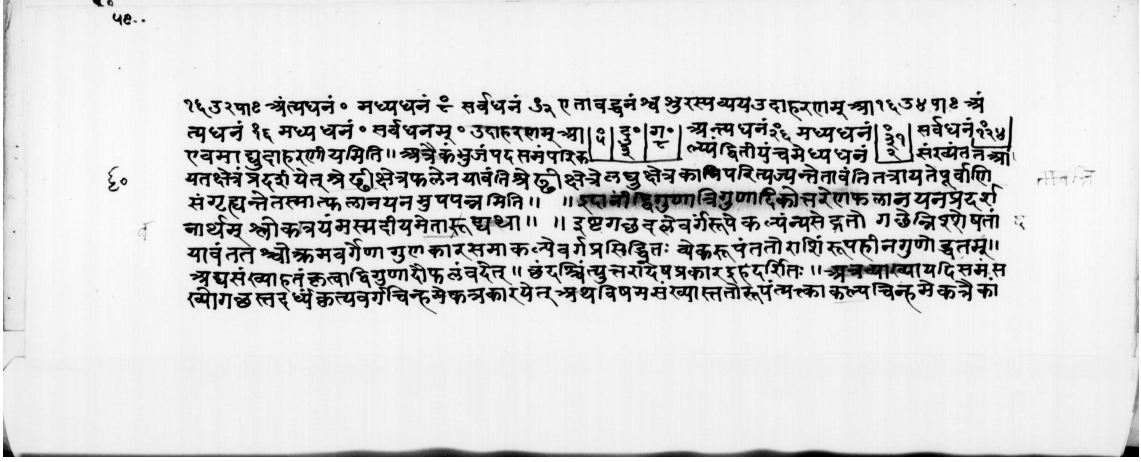 ५९
१६ उ २ प ८ अंत्यधनं ० मध्यधनं सर्वधनं ३२ एतावद्धनं श्वश्रुरस्य व्यय उदाहरणम् आ १६ उ ४ प ८ अं
त्यधनं १६ मध्यधनं ० सर्वधनम् ० उदाहरणम् आ ५ उ ग अंत्यधनं मध्यधनं सर्वधनं
एवमाद्युदाहरणीयमिति ॥ अत्रैकं भुजं पदसमं परिक ल्प्य द्वितीयं च मध्यधनं संख्यं तत आ
यतक्षेत्रं प्रदर्शयेत् श्रेढीक्षेत्रफलेन यावंति श्रेढीक्षेत्रे लघुक्षेत्रकाणि परित्यज्यन्ते तावंति तत्रायते पूर्वाणि
६०
संगृह्यन्ते तस्मात्फलानयनमुपपन्नमिति ॥ ॥ इदानीं द्विगुणात्रिगुणादिकोत्तरेण फलानयनप्रदर्श
नार्थम् श्लोकत्रयमस्मदीयमेतारूद्यथा ॥ ॥ इष्टगच्छदले वर्गरूपे कल्प्यं न्यसेद्गतो गछेन्निश्शेषतां
यावंतत श्चोत्क्रमवर्गेणा गुणकारसमाकल्पे वर्गप्रसिद्धितः व्येकरूपं ततो राशिं रूपहीनगुणोद्धृतम् ॥
आद्यसंख्याहतं कृत्वा द्विगुणादौ फलं वदेत् ॥ छंदश्चित्युत्तरादेष प्रकार इह दर्शितः ॥ अत्र व्याख्या यदि समस
ख्यो गछस्तदर्ध्यं कृत्य वर्गचिन्हमेकत्र कारयेत् अथ विषमसंख्यास्ततो रूपं त्यक्ता कल्पचिन्हमेकत्रैका